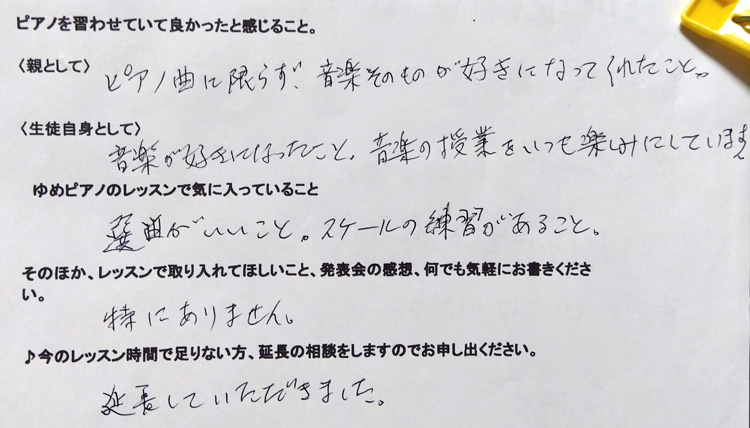 ピアノを習わせていて良かったと感じること。
〈親として〉
ピアノ曲に限らず、音楽そのものが好きになってくれたこと。
〈生徒自身として〉
音楽が好きになったこと。音楽の授業をいつも楽しみにしています
ゆめピアノのレッスンで気に入っていること
選曲がいいこと。スケールの練習があること。
そのほか、レッスンで取り入れてほしいこと、発表会の感想、何でも気軽にお書きくださ
い。
特にありません。
♪今のレッスン時間で足りない方、延長の相談をしますのでお申し出ください。
延長していただきました。